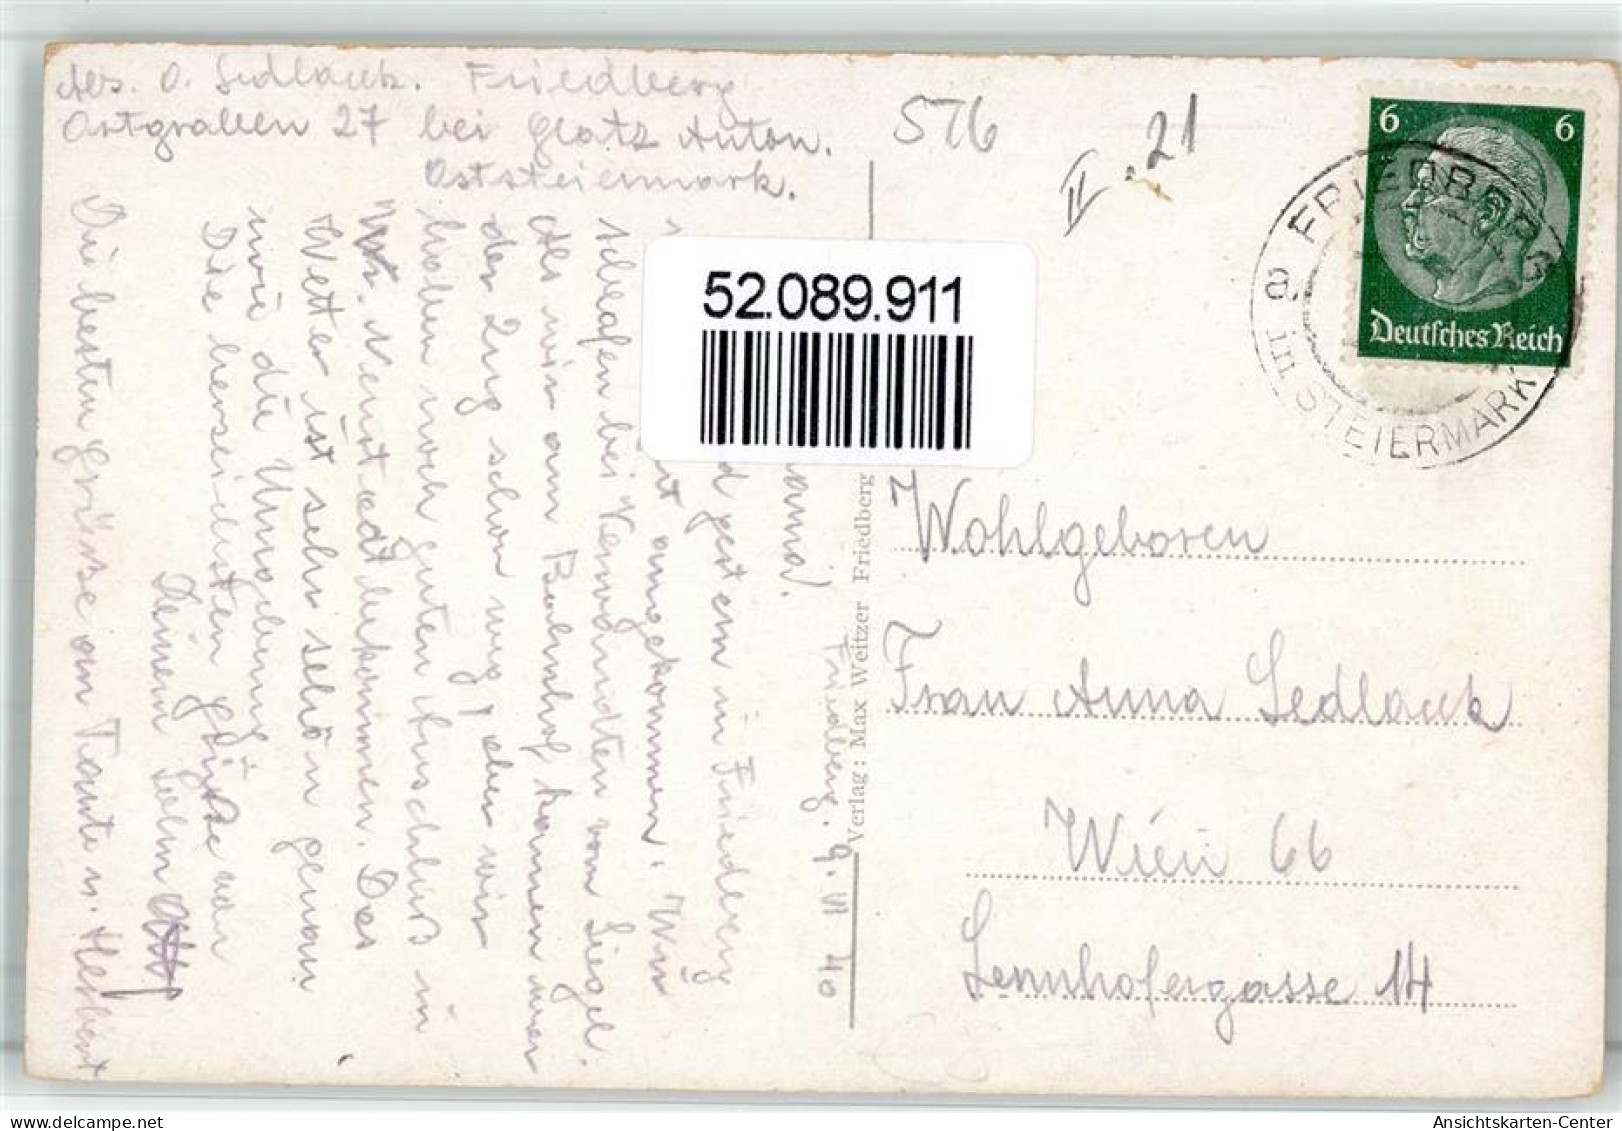 Abs. O. Sedlacek. Friedberg
Ortgraben 27 bei Glatz Anton.
Oststeiermark.
576
II. 21
6 6
Deutsches Reich
FRIEDBERG
a
in STEIERMARK
52.089.911
Friedberg. 9. VI 40
ama!
d gestern in Friedberg
t angekommen. Wir
schlafen bei Verwandten von Siegel.
Als wir am Bahnhof kamen war
der Zug schon weg, aber wir
haben noch guten Anschluß in
Wr. Neustadt bekommen. Das
Wetter ist sehr schön genau
wie die Umgebung.
Die herzlichsten Grüße von
Deinem Sohn
Die besten Grüsse an Tante u. Herbert
Verlag: Max Weitzer Friedberg
Wohlgeboren
Frau Anna Sedlacek
Wien 66
gasse 14
AnsichtskartenCenter www.delcampe.net
Ansichtskarten-Center